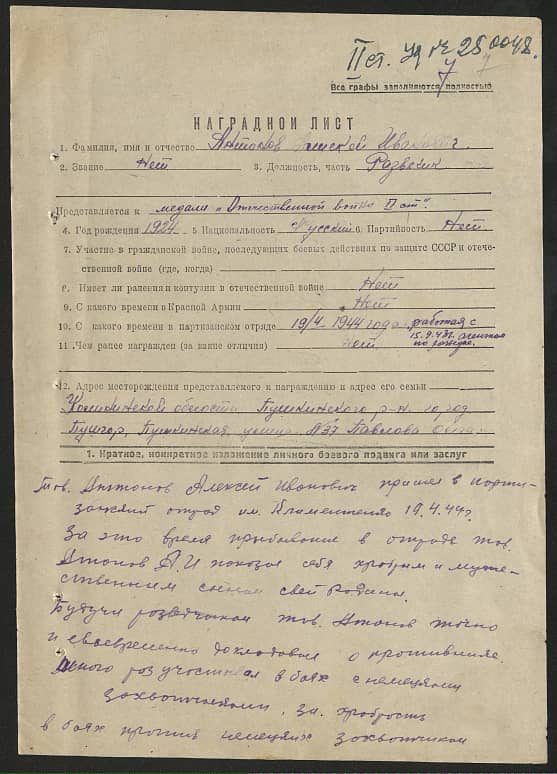 II ст. Уд № 280048.
7
Все графы заполняются полностью
НАГРАДНОЙ ЛИСТ
1. Фамилия, имя и отчество Иванович.
2. Звание Нет 3. Должность, часть Разведчик
Представляется к медали "Отечественной война II ст".
4. Год рождения 1924 5 Национальность Русский 6. Партийность Нет
7. Участие в гражданской войне, последующих боевых действиях по защите СССР и отече-
ственной войне (где, когда)
8. Имеет ли ранения и контузии в отечественной войне Нет
9. С какого времени в Красной Армии Нет
10. С какого времени в партизанском отряде 19/4. 1944 года, работая с
15.9.43г. агентом
по разведке.
11. Чем ранее награжден (за какие отличия) нет
12. Адрес месторождения представляемого к награждению и адрес его семьи
области Пушкинского р-н. город
Пушкинская, улица №37 Павлова
1. Краткое, конкретное изложение личного боевого подвига или заслуг
Тов. Антонов Алексей Иванович пришел в парти-
занский отряд им. 19.4.44г.
За это время прибывание в отряде тов.
Антонов А.И показал себя храбрим и муже-
ственним сыном свей Родини.
Будучи розведчиком тов. Антонов точно
и своевременно докладовал о противнике.
Много роз участвовал в боях с немецкими
захватчиками. За храбрость
в боях против немецких захватчиком